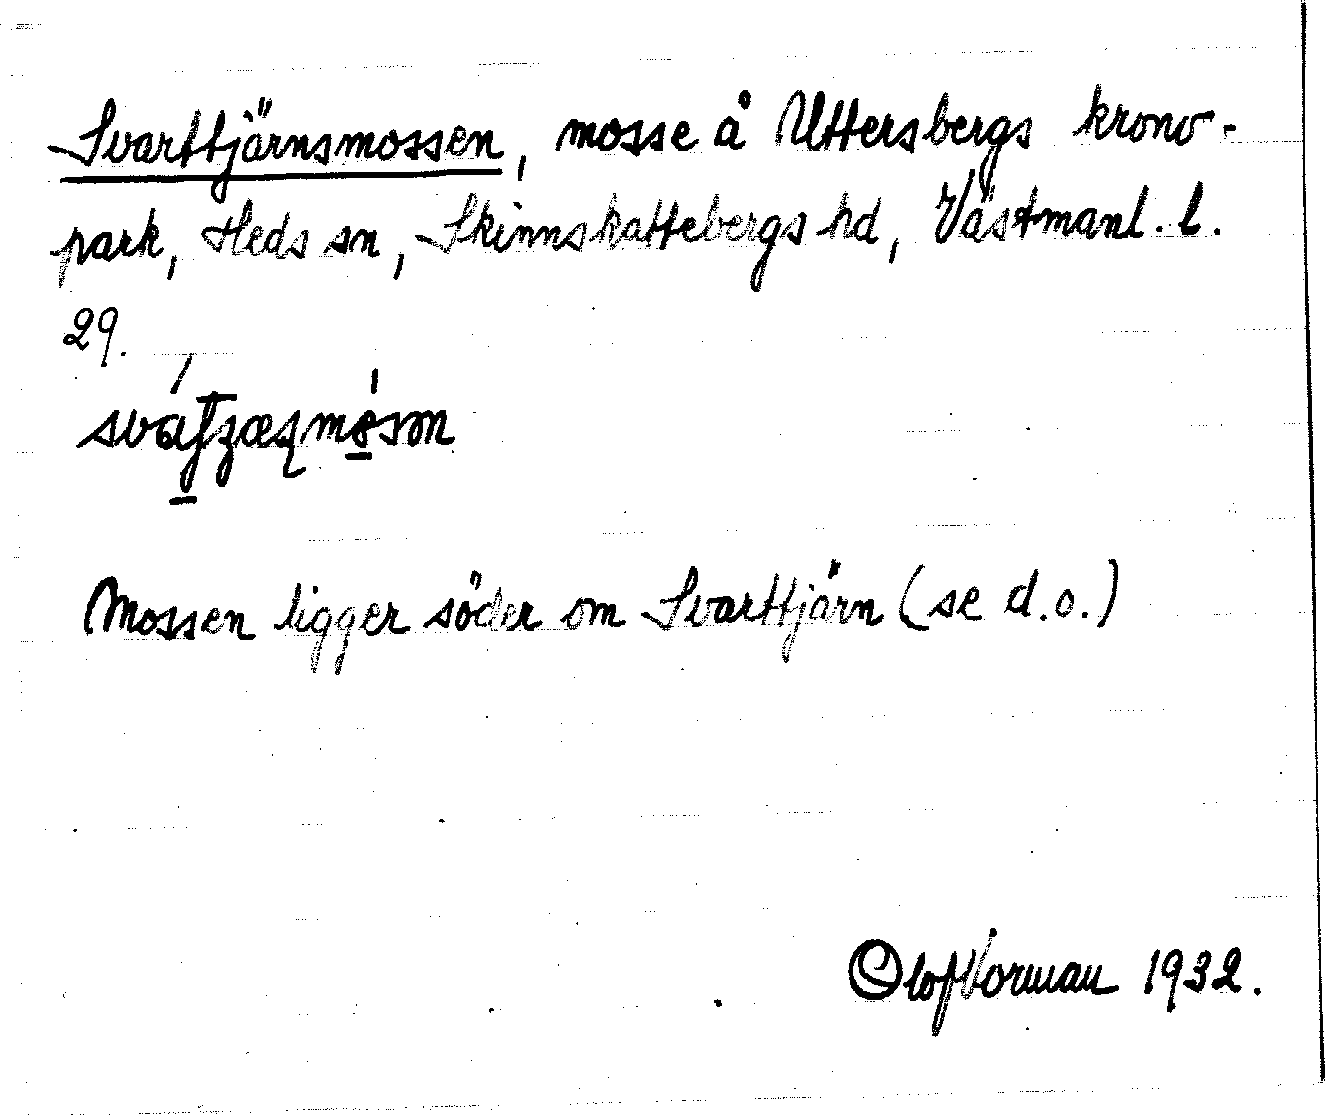 Svarttjärnsmossen, mosse å Uttersbergs krono-
park, Heds sn, Skinnskattebergs hd, Västmanl. l.
29.
Mossen ligger söder om Svarttjärn (se d.o.)
Olof Vorman 1932.